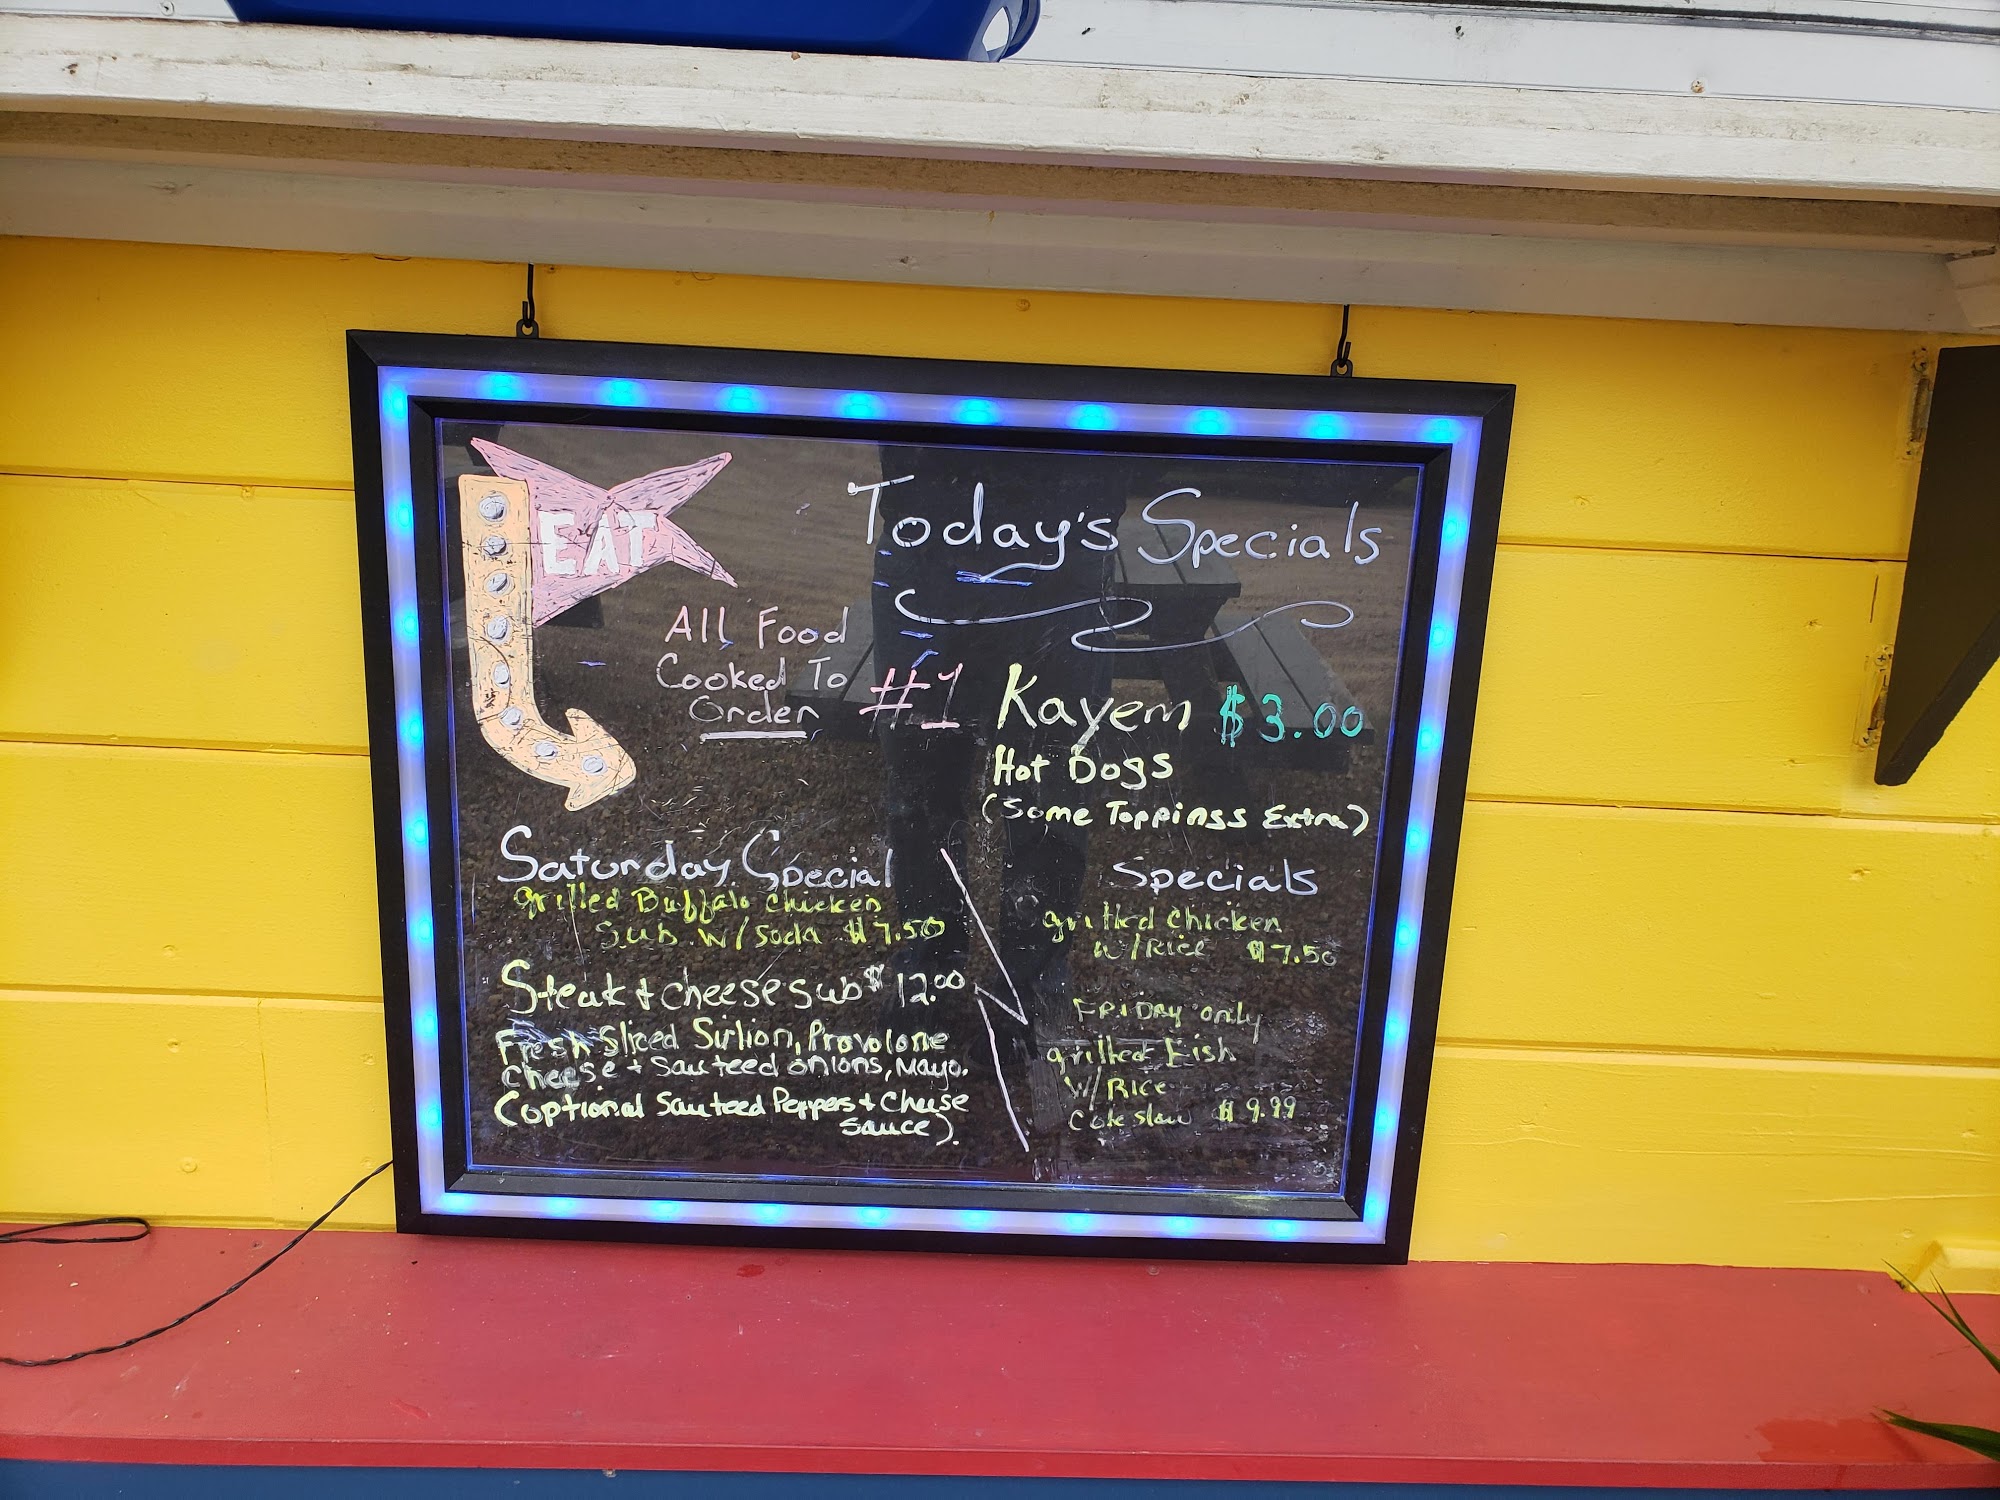 EAT
Today's Specials
All Food
Cooked To
Order
#1 Kayem $3.00
Hot Dogs
(Some Toppings Extra)
Saturday Special
grilled Buffalo chicken
Sub w/ soda $7.50
Steak + cheese sub $12.00
Fresh Sliced Sirlion, Provolone
Cheese + Sauteed onions, Mayo.
(optional Sauteed Peppers + Cheese
Sauce).
Specials
grilled chicken
w/Rice $7.50
FRiDay only
grilled Fish
w/Rice
Cole slaw $9.99